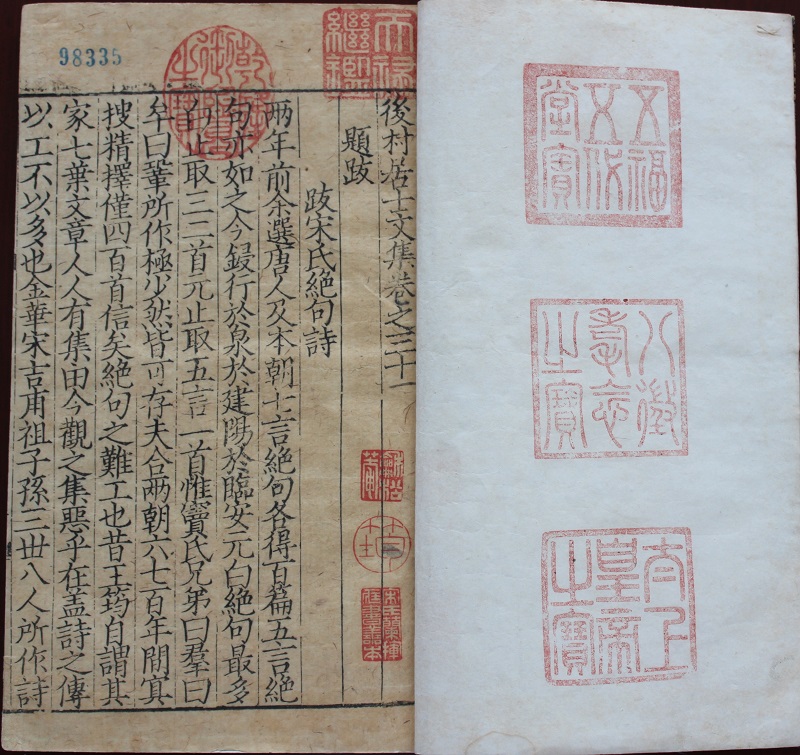 五福五代堂寶
八徵耄念之寶
太上皇帝之寶
天祿繼鑑
乾隆御覽之寶
98335
後村居士文集卷之三十一
題跋
跋宋氏絕句詩
兩年前余選唐人及本朝七言絕句各得百篇五言絕
句亦如之今鋟行於泉於建陽於臨安元白絕句最多
白止取三二首元止取五言一首惟竇氏兄弟曰羣曰
牟曰鞏所作極少然皆可存夫合兩朝六七百年間冥
搜精擇僅四百首信矣絕句之難工也昔王筠自謂其
家七葉文章人人有集由今觀之集惡乎在盖詩之傳
以工不以多也金華宋吉甫祖子孫三丗八人所作詩